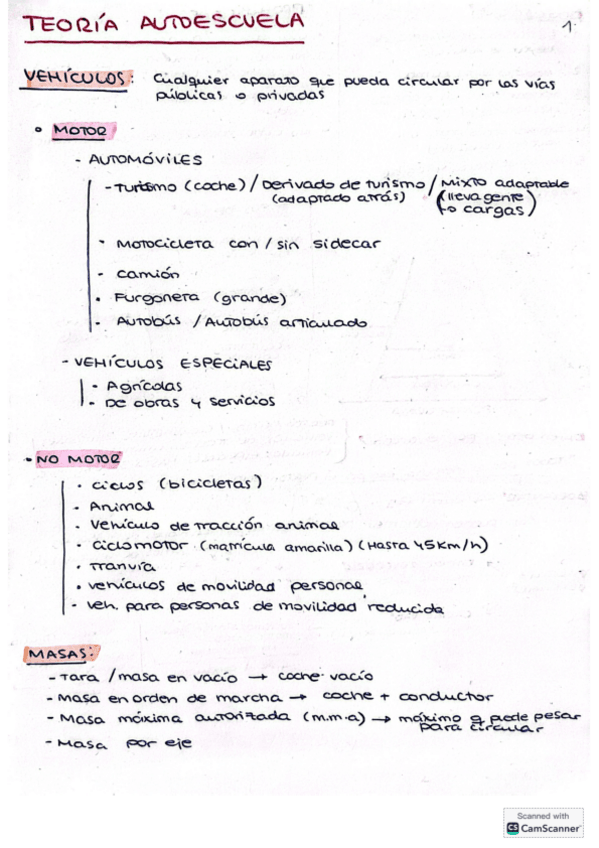 TEORÍA AUTOESCUELA
1.
VEHÍCULOS: Cualquier aparato que pueda circular por las vías
públicas o privadas
• MOTOR
- AUTOMÓVILES
- Turismo (coche) / Derivado de turismo / Mixto adaptable
(adaptado atrás) (lleva gente
o cargas)
• Motocicleta con / sin sidecar
- Camión
• Furgoneta (grande)
- Autobús / Autobús articulado
- VEHÍCULOS ESPECIALES
- Agrícolas
- De obras y servicios
• NO MOTOR
• Ciclos (bicicletas)
- Animal
• Vehículo de tracción animal
• Ciclomotor (matrícula amarilla) (Hasta 45Km/h)
• Tranvía
• vehículos de movilidad personal
- veh. para personas de movilidad reducida
MASAS:
- Tara / masa en vacío → coche vacío
- Masa en orden de marcha → coche + conductor
- Masa máxima autorizada (m.m.a) → máximo q pede pesar
para circular
- Masa por eje
Scanned with
CS CamScanner